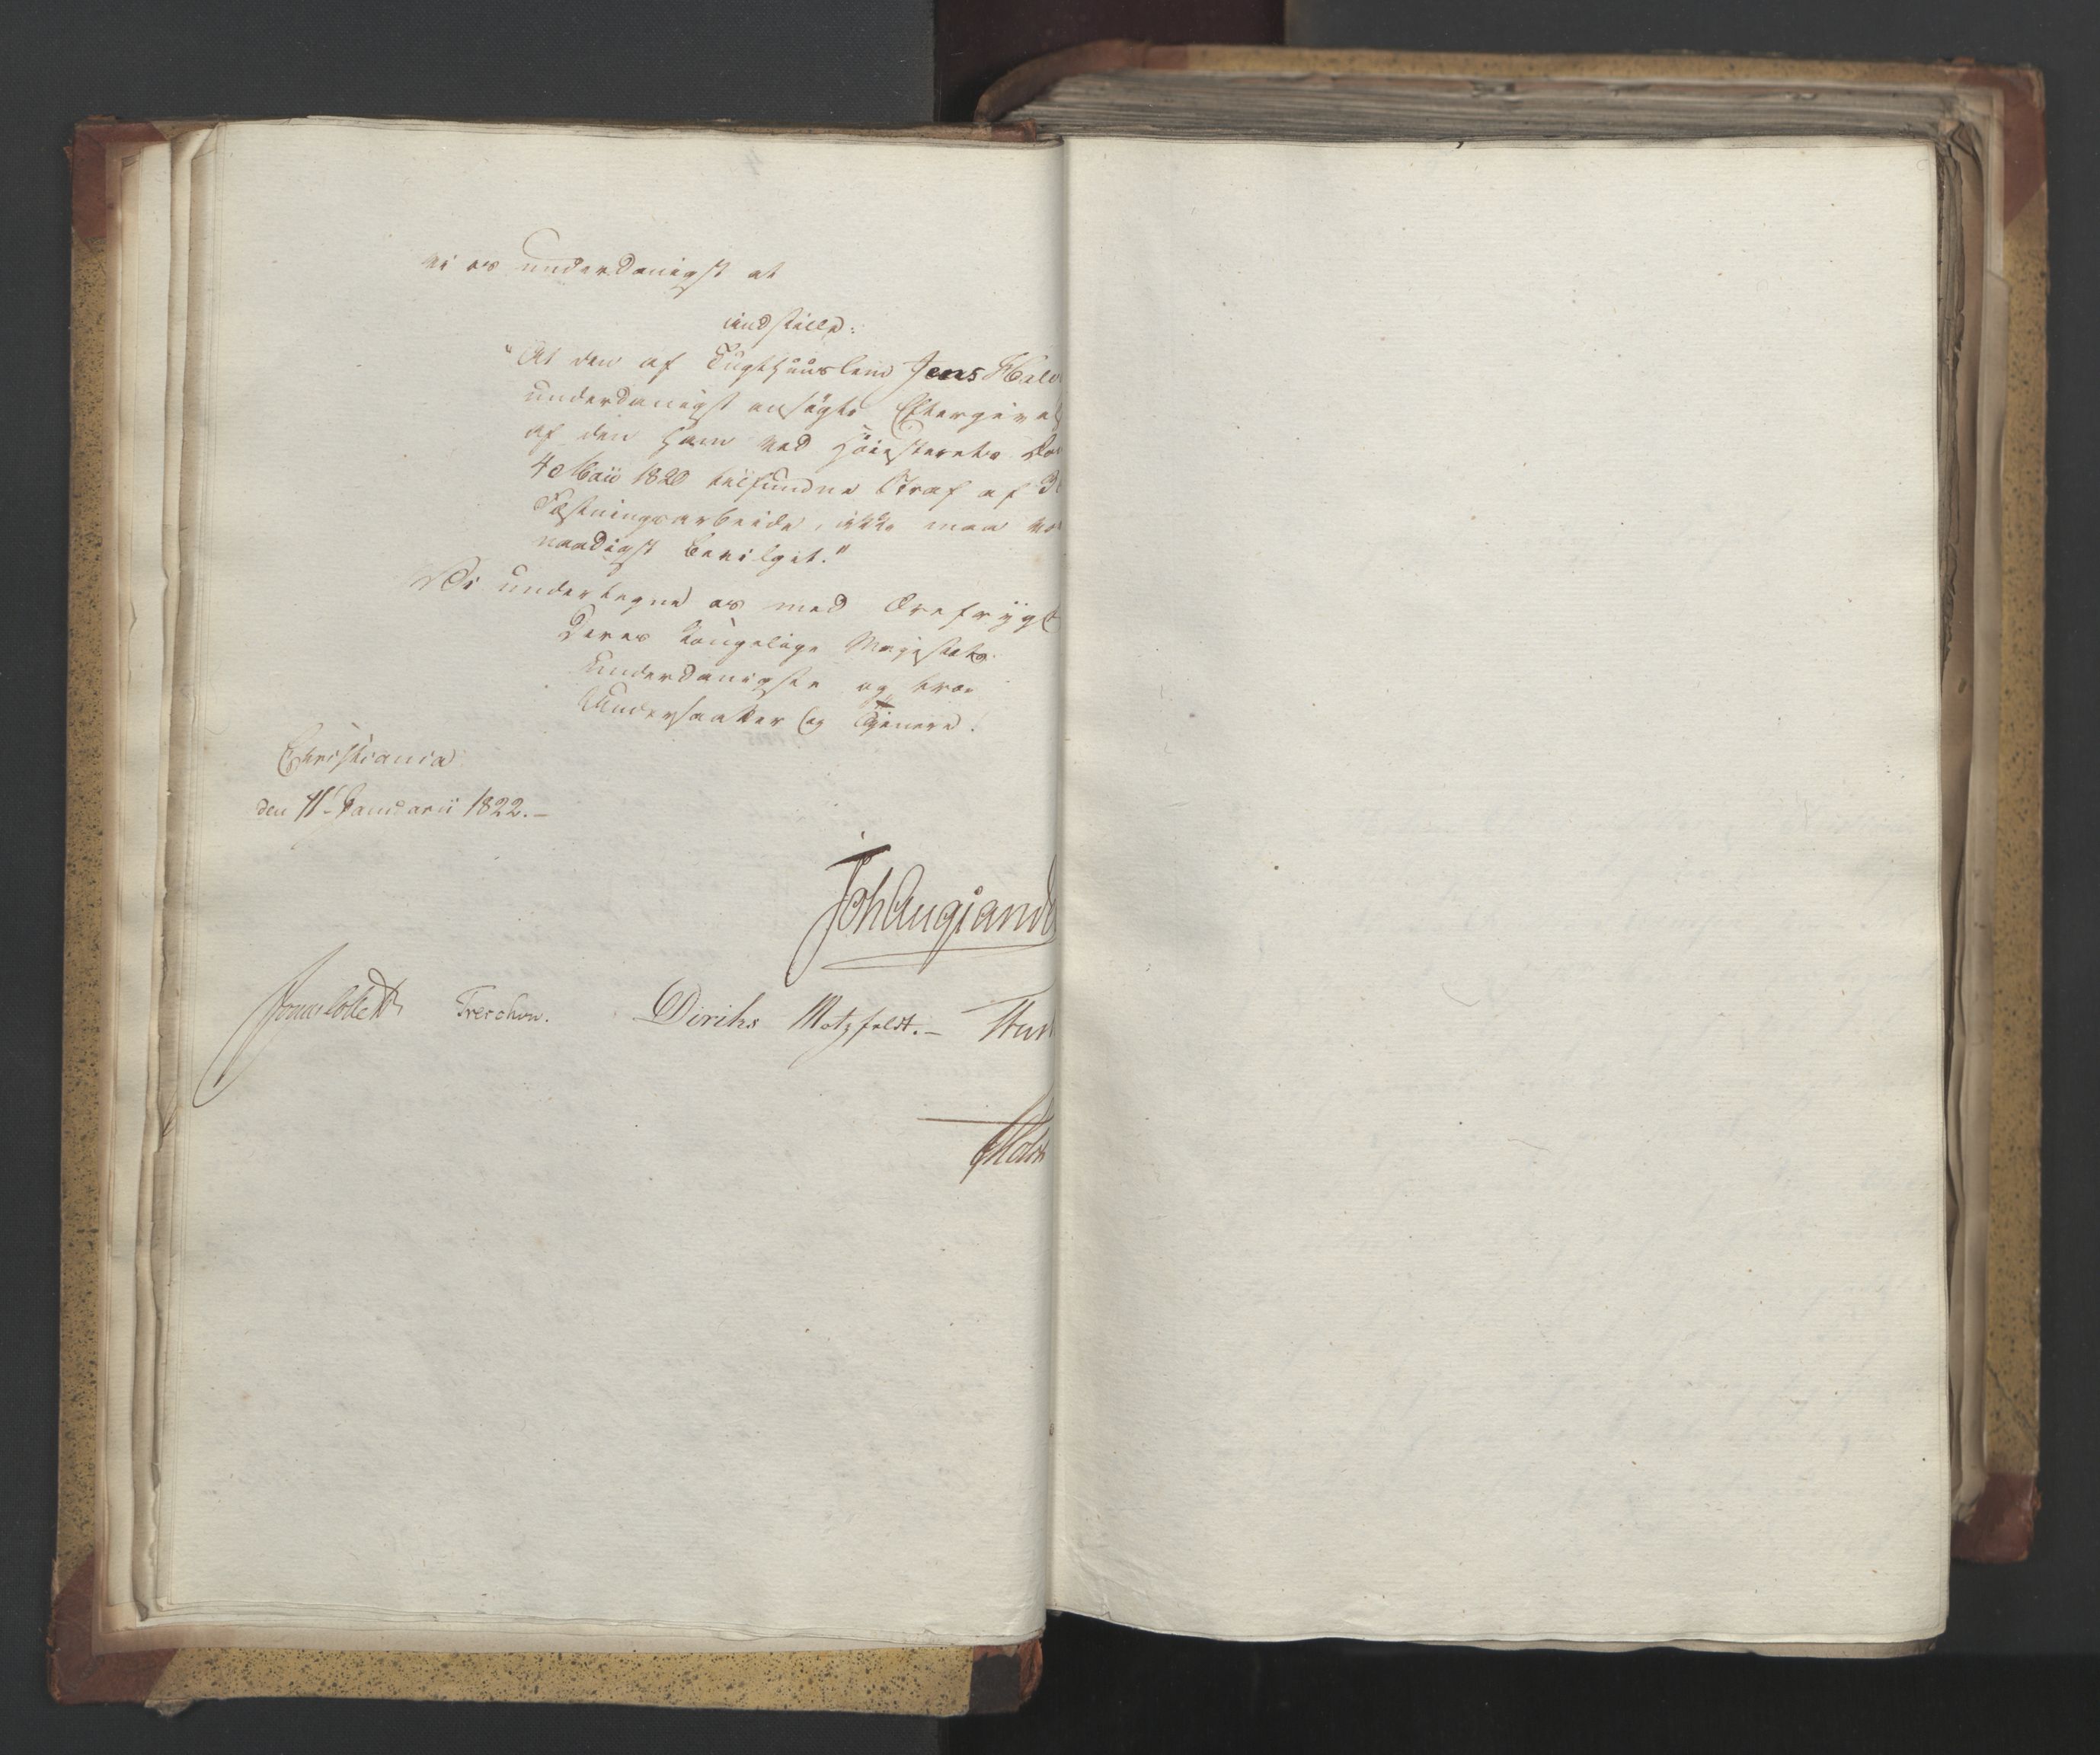 vi os underdanigst at
indstille:
"At den af Tugthuuslem Jens Hal
underdanigst ansøgte Eftergivels
af den ham ved Høiesterets Do
4de Maii 1820 tilfundne Straf af 3
Fæstningsarbeide, ikke maa vor
naadigst bevilget."
Vi undertegne os med Ærefrygt
Deres Kongelige Majestæts
underdanigste og troe
Undersaatter og Tjenere.
Christiania
den Januarii 1822.–
Joh Aug Sand
Jonas Collett Treschow. Diriks Motzfeldt.–
Holst